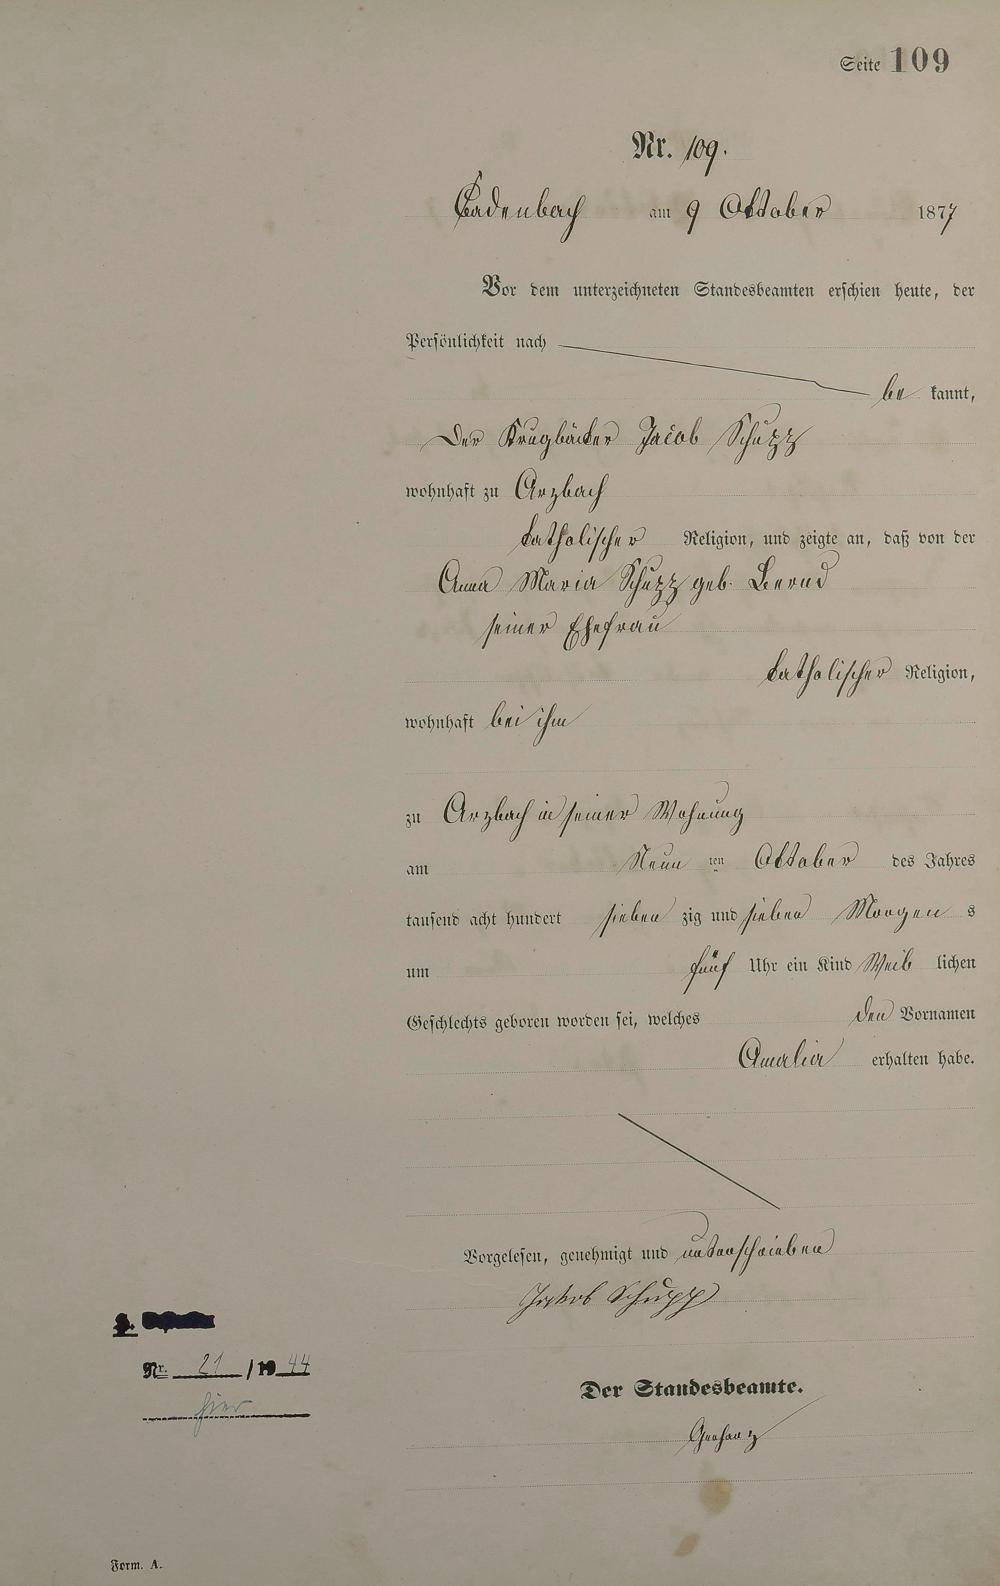 Seite 109
Nr. 109.
Cadenbach am 9 Oktober 1877
Vor dem unterzeichneten Standesbeamten erschien heute, der
Persönlichkeit nach
be kannt,
Der Krugbäcker Jacob Schupp
wohnhaft zu Arzbach
katholischer Religion, und zeigte an, daß von der
Anna Maria Schupp geb. Bernd
seiner Ehefrau
katholischer Religion,
wohnhaft bei ihm
zu Arzbach in seiner Wohnung
am Neun ten Oktober des Jahres
tausend acht hundert sieben zig und sieben Morgen s
um fünf Uhr ein Kind Weib lichen
Geschlechts geboren worden sei, welches den Vornamen
Amalia erhalten habe.
Vorgelesen, genehmigt und unterschrieben
Jakob Schupp
Nr. 21 /19 44
hier
Der Standesbeamte.
Gerharz
Form. A.